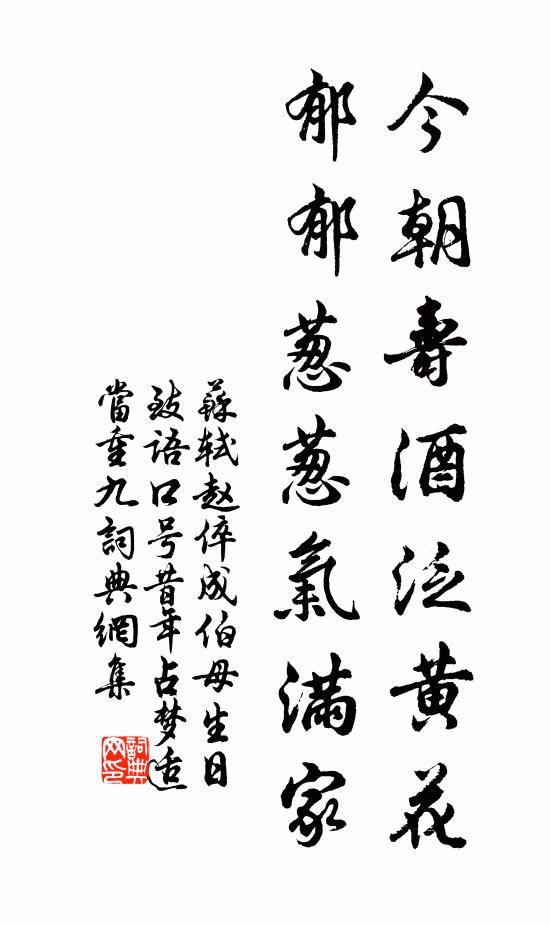 今朝壽酒泛黄花
郁郁葱葱氣滿家
蘇轼赵倅成伯母生日
致语口号昔年占梦适
當重九詞典網集
詞典网印